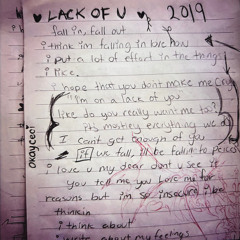 LACK OF U 2019
fall in, fall out
i think im falling in love now
i put a lot of effort in the things
i like.
i hope that you dont make me cry
"im on a lace of you
like do you really want me to?
its mostley everything we do
I cant get enough of you
if we fall, i'll be fallin to pieces
i love u my dear dont u see it
you tell me you love me for
reasons but im so insecure i be
thinkin
i think about
i write about my feelings
okayceoi